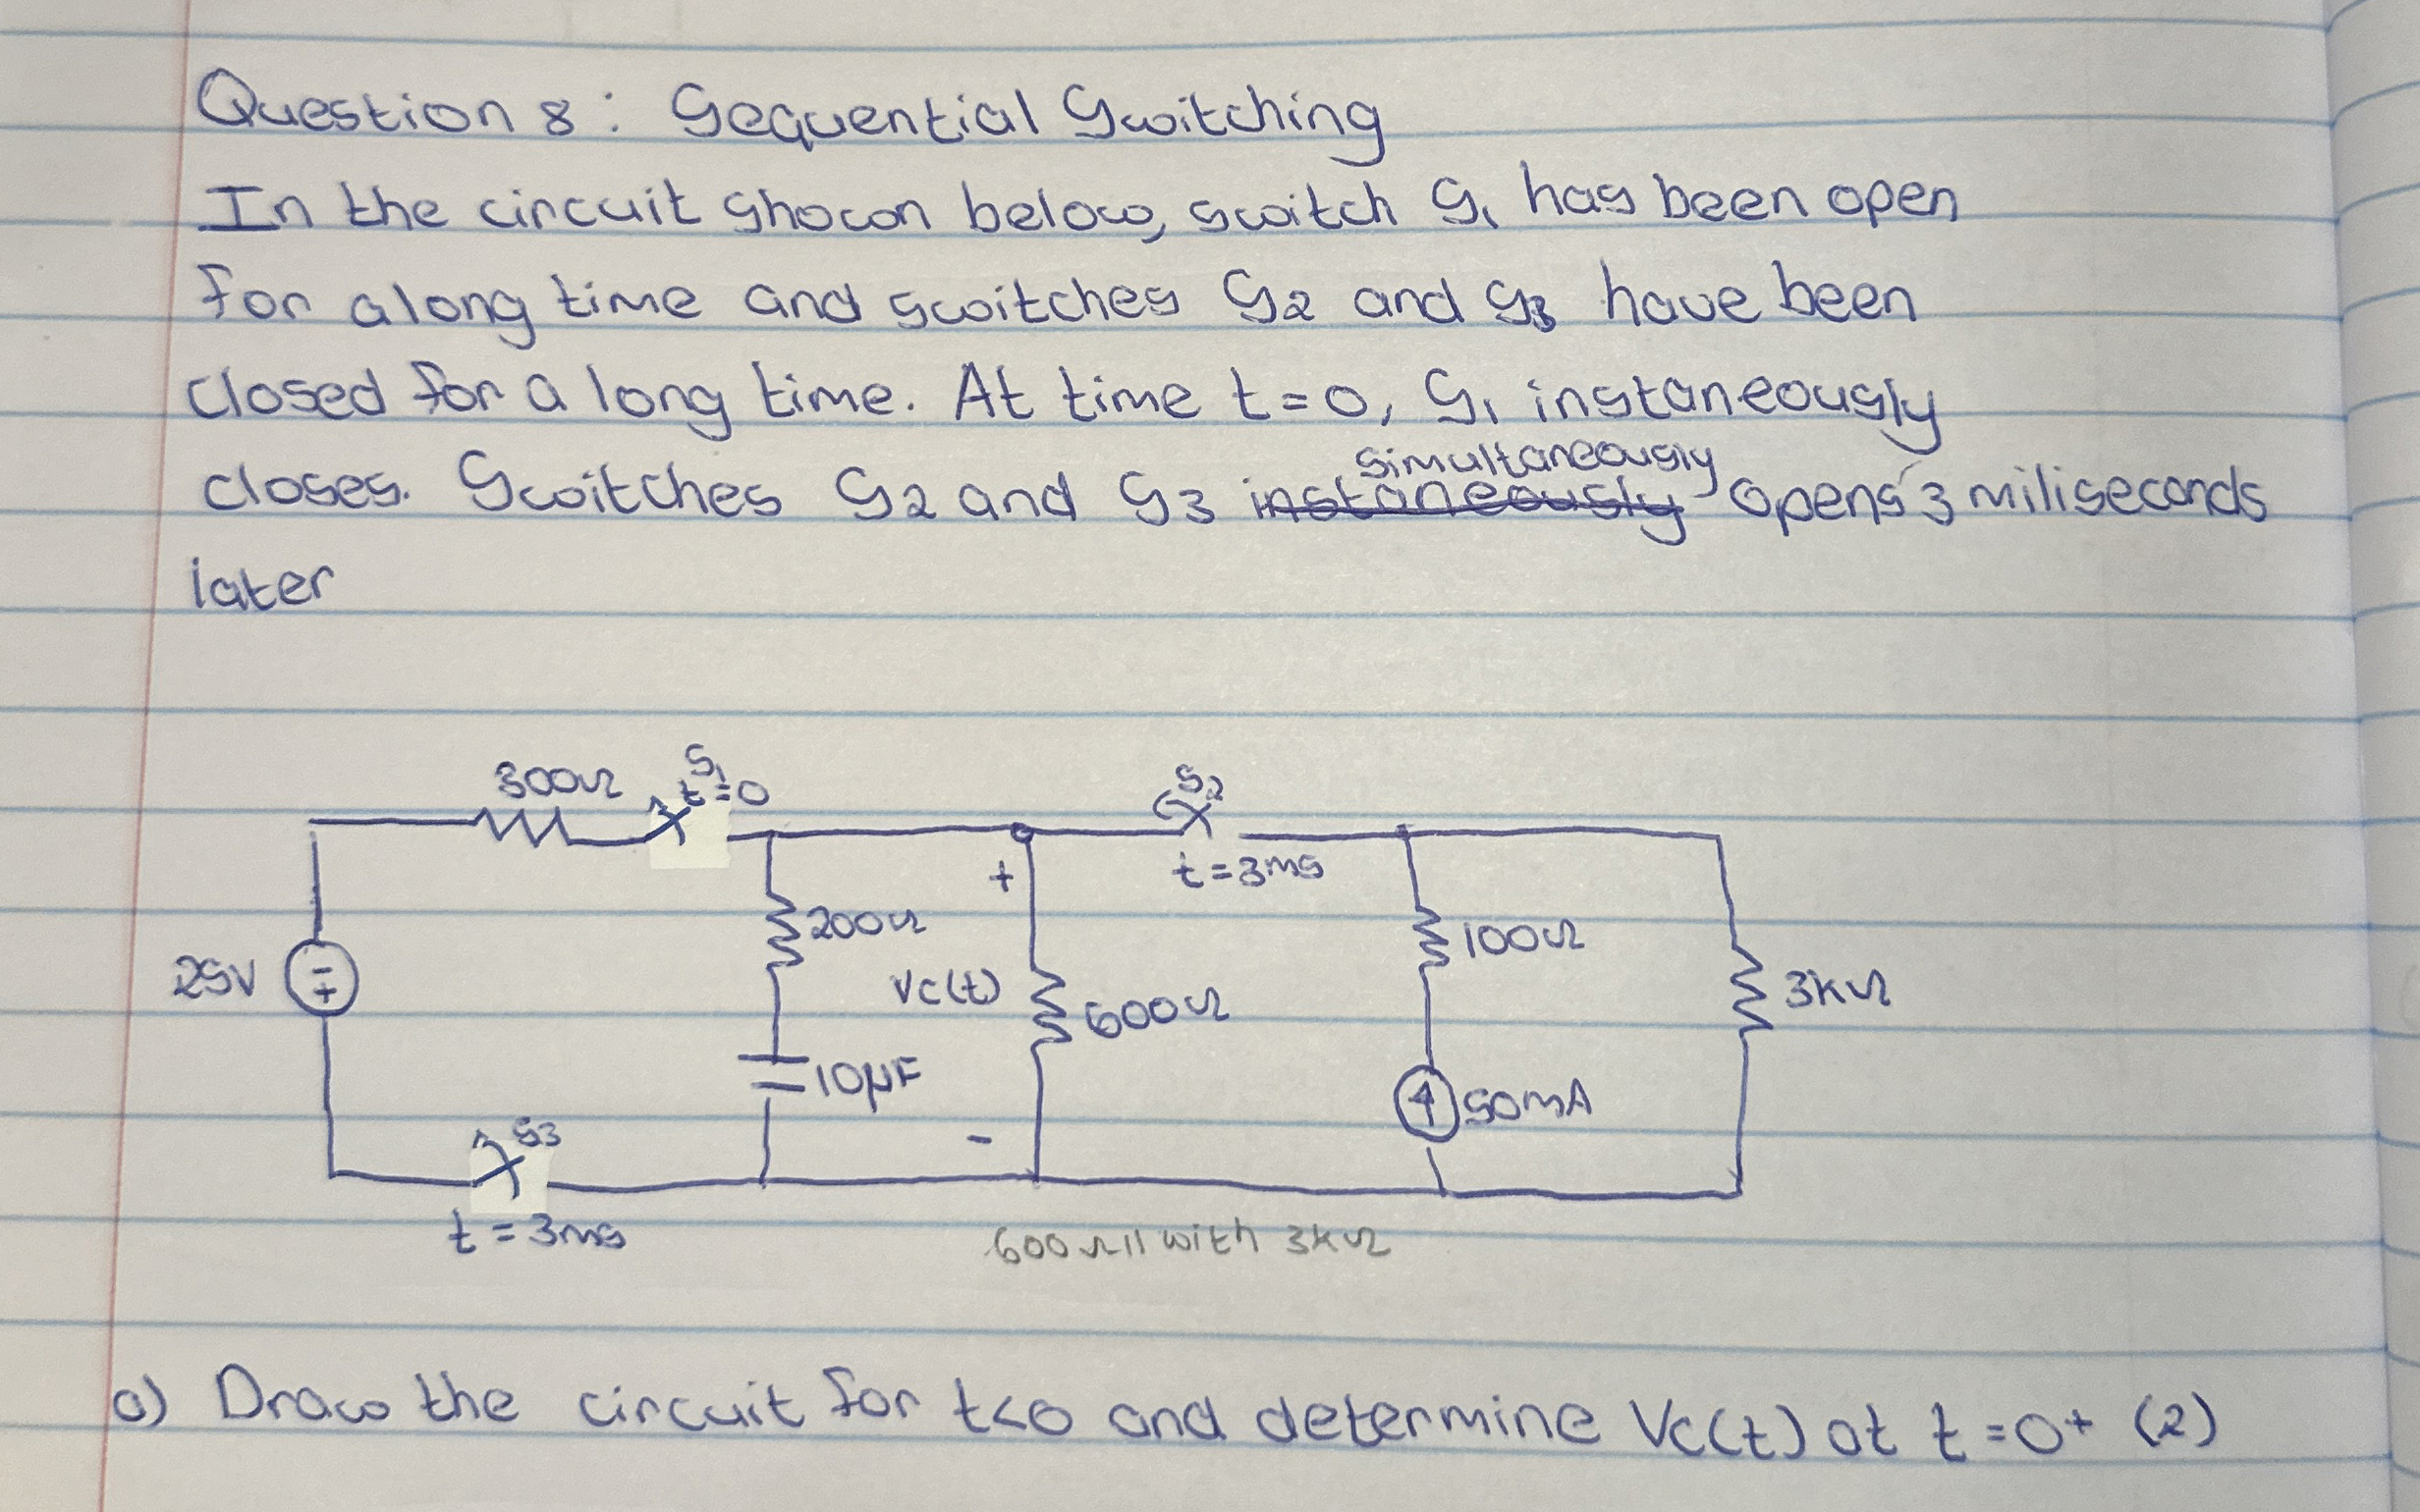 Question 8: Sequential Switching
In the circuit shown below, switch S1 has been open
for a long time and switches S2 and S3 have been
closed for a long time. At time t=0, S1 instaneously
simultaneously
closes. Switches S2 and S3 instaneously opens 3 miliseconds
later
S1
300Ω t=0
S2
t=3ms
+
200Ω
100Ω
25V - + Vc(t) 600Ω 3kΩ
10µF
50mA
S3 -
t=3ms
600Ω || with 3kΩ
a) Draw the circuit for t<0 and determine Vc(t) at t=0+ (2)